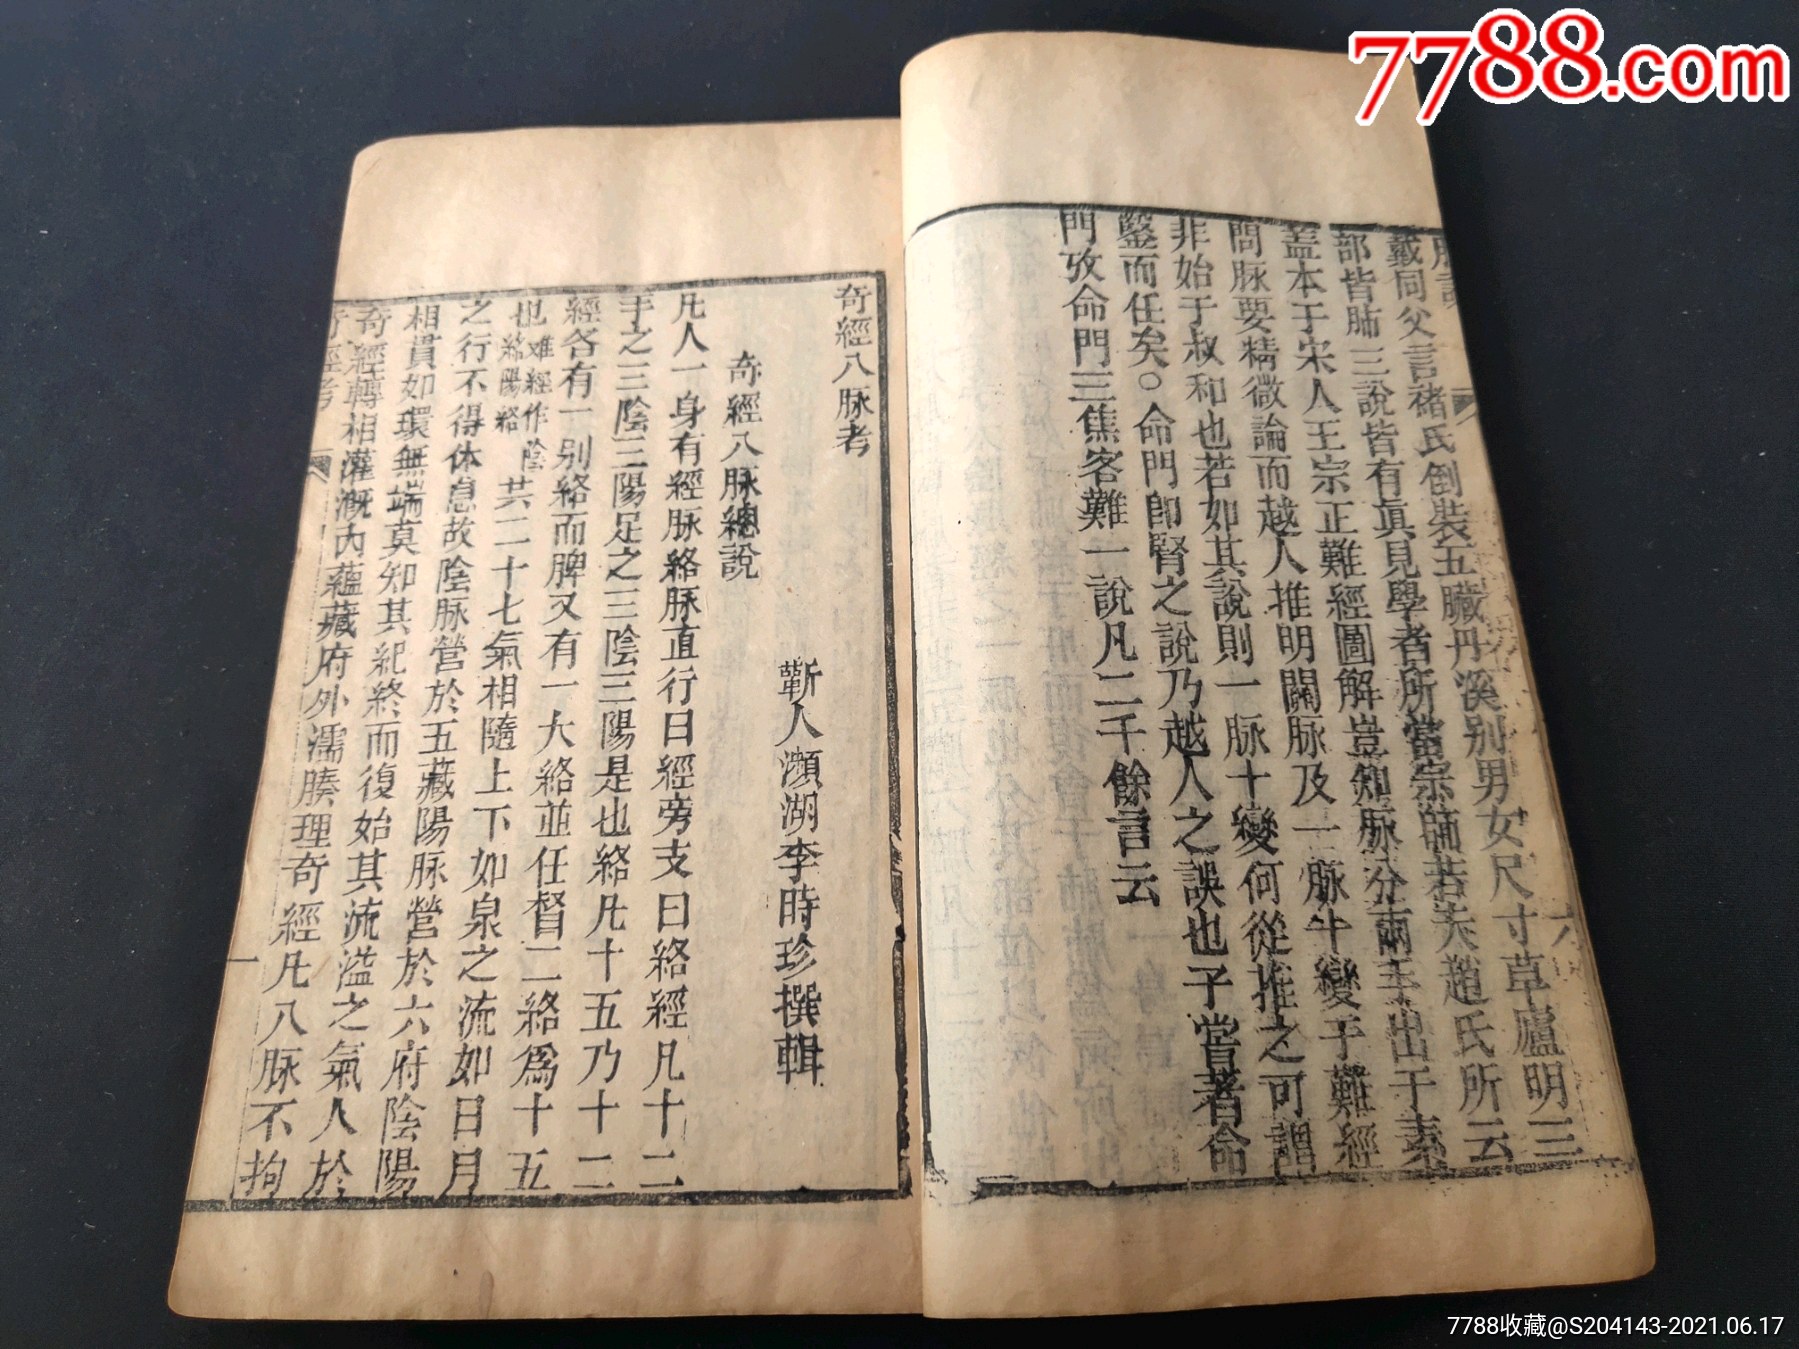 7788.com
脉訣
六
戴同父言褚氏倒裝五臟丹溪别男女尺寸草廬明三
部皆肺三說皆有眞見學者所當宗師若夫趙氏所云
蓋本于宋人王宗正難經圖解豈知脉分兩手出于素
問脉要精微論而越人推明關脉及一脉十變于難經
非始于叔和也若如其說則一脉十變何從推之可謂
鑿而任矣○命門卽腎之說乃越人之誤也予嘗著命
門攷命門三焦客難一說凡二千餘言云
奇經八脉考
蘄人瀕湖李時珍撰輯
奇經八脉總說
凡人一身有經脉絡脉直行曰經旁支曰絡經凡十二
手之三陰三陽足之三陰三陽是也絡凡十五乃十二
經各有一别絡而脾又有一大絡並任督二絡爲十五
也難經作陰絡陽絡共二十七氣相隨上下如泉之流如日月
之行不得休息故陰脉營於五藏陽脉營於六府陰陽
相貫如環無端莫知其紀終而復始其流溢之氣人於
奇經轉相灌溉內蘊藏府外濡腠理奇經凡八脉不拘
奇經考
一
7788收藏@S204143-2021.06.17